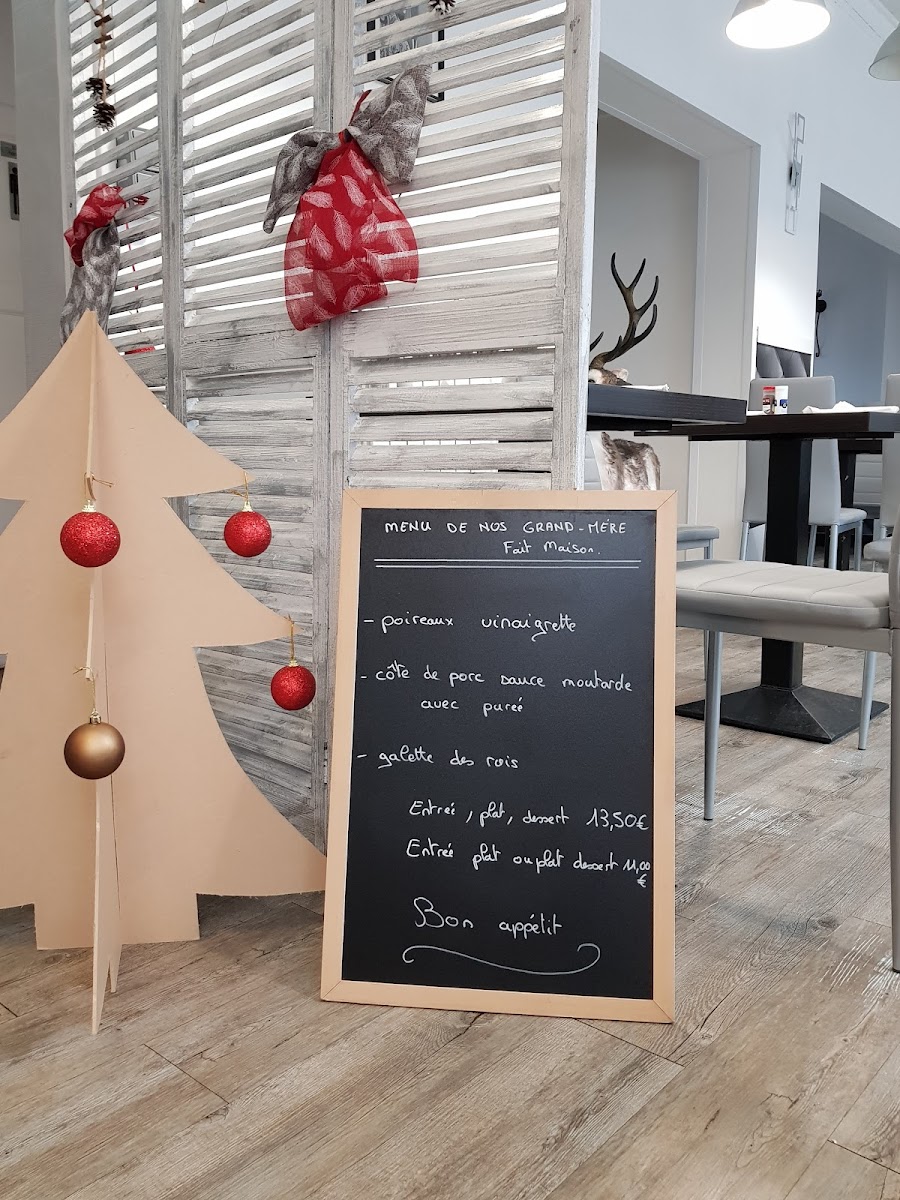 MENU DE NOS GRAND-MÈRE
Fait Maison.
- poireaux vinaigrette
- côte de porc sauce moutarde
avec pureé
- galette des rois
Entreé, plat, dessert 13,50€
Entreé plat ou plat dessert 11,00
€
Bon appétit